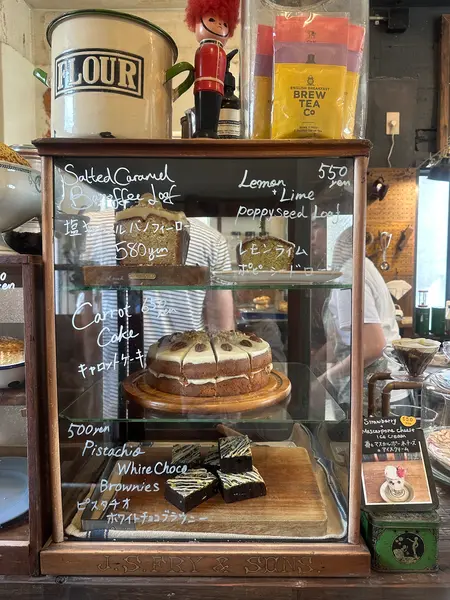 FLOUR
ENGLISH BREAKFAST
BREW
TEA
Co
Salted Caramel
Banoffee Loaf
580yen
Lemon
+ Lime
poppyseed Loaf
550
yen
レモンライム
Carrot
Cake
キャロットケーキ
500yen
Pistachio
White Choco
Brownies
ピスタチオ
ホワイトチョコブラウニー
Strawberry
Mascarpone cheese
Ice cream
J.S. FRY & SONS